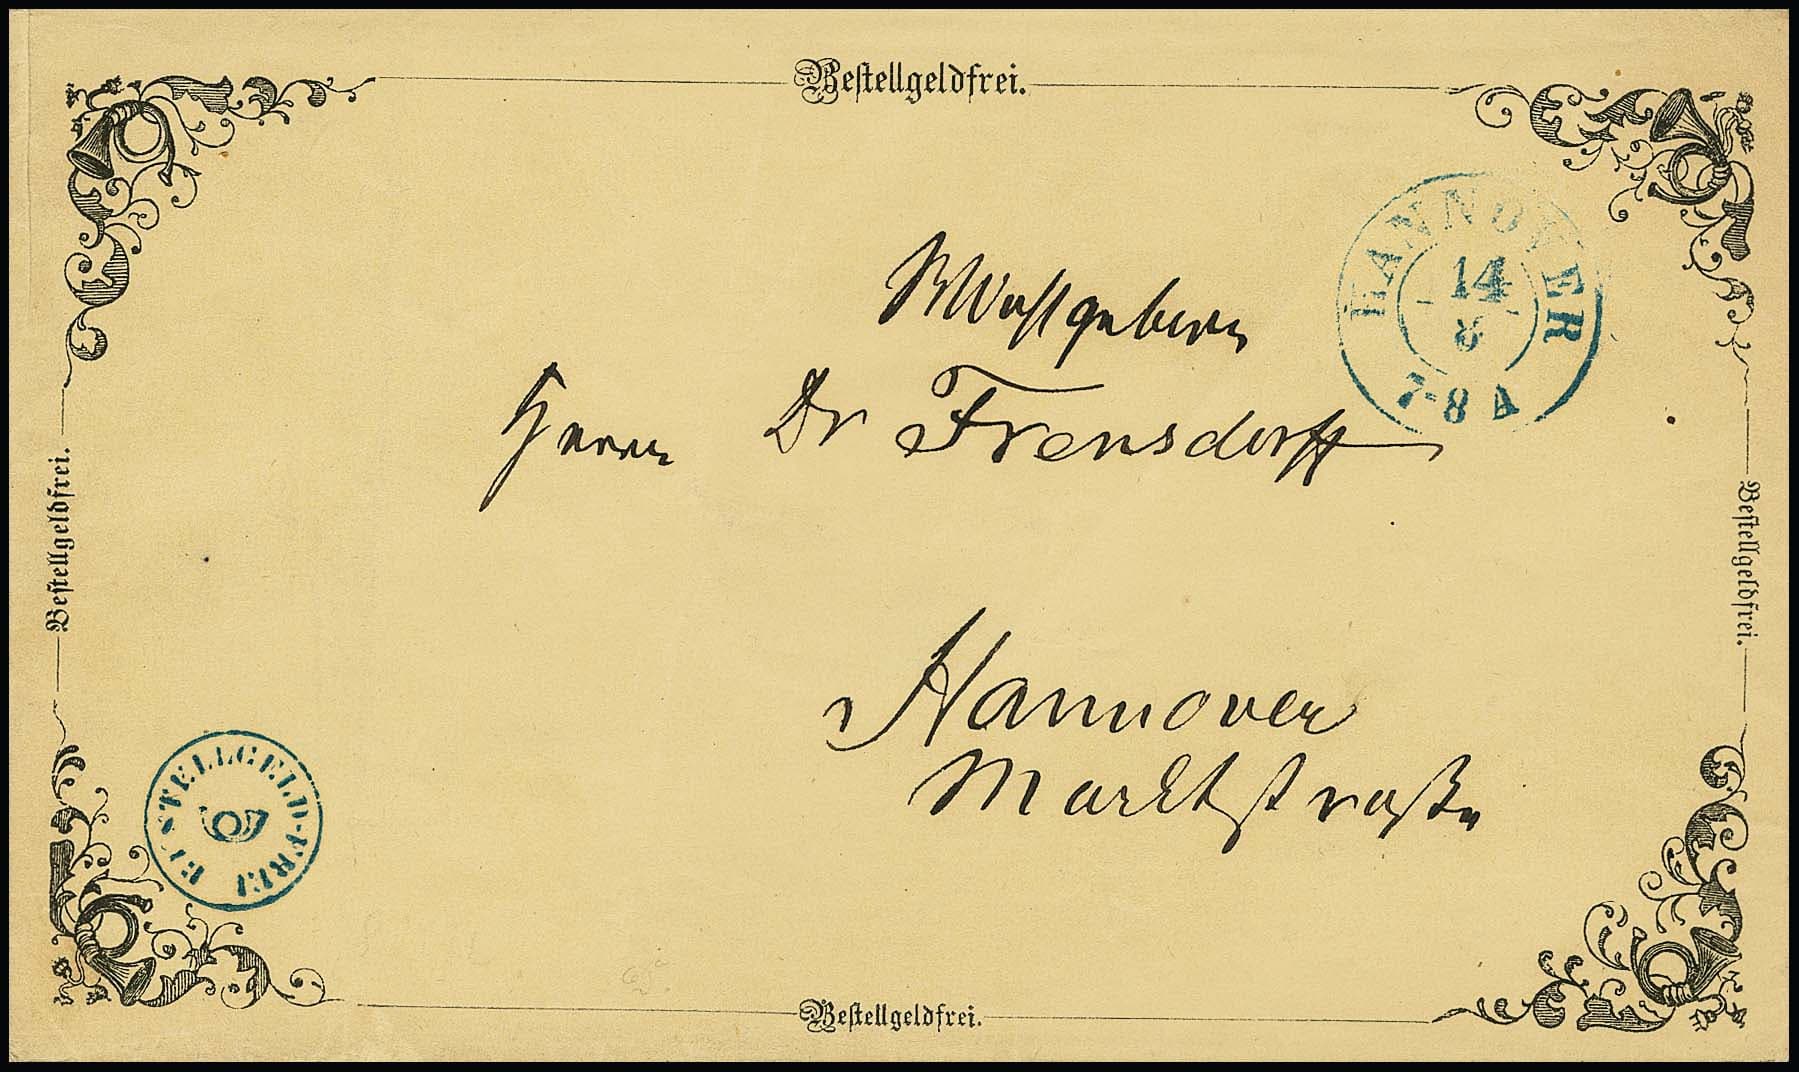 Bestellgeldfrei.
HANNOVER
14
8
7-8 A
Wohlgeboren
Herrn Dr Frensdorff
Bestellgeldfrei.
Bestellgeldfrei.
Hannover
Marktstraße
BESTELLGELD-FREI
Bestellgeldfrei.